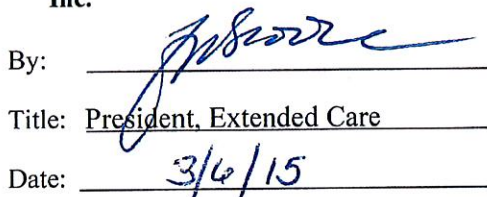 Inc.
By:
Title: President, Extended Care
Date: 3/6/15